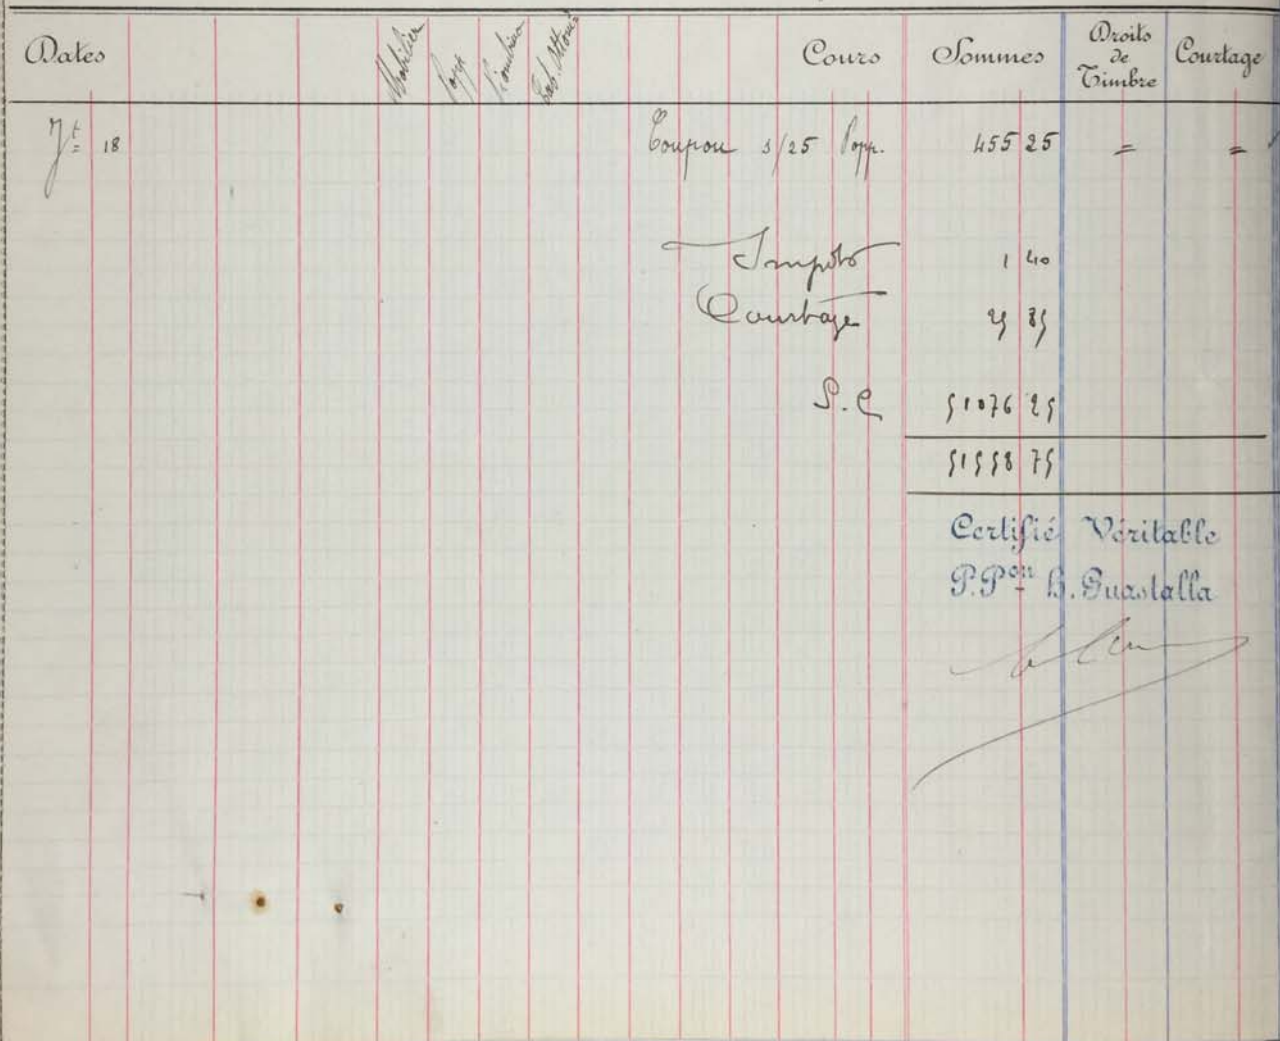 Dates Mobilier Popp Piombino Tab. Ottom. Cours Sommes Droits de Timbre Courtage
Jt 18 Coupon s/25 Popp. 455 25 = =
Impôts 1 40
Courtage 25 85
S.C 51076 25
51558 75
Certifié Véritable
P.Pon B. Guastalla